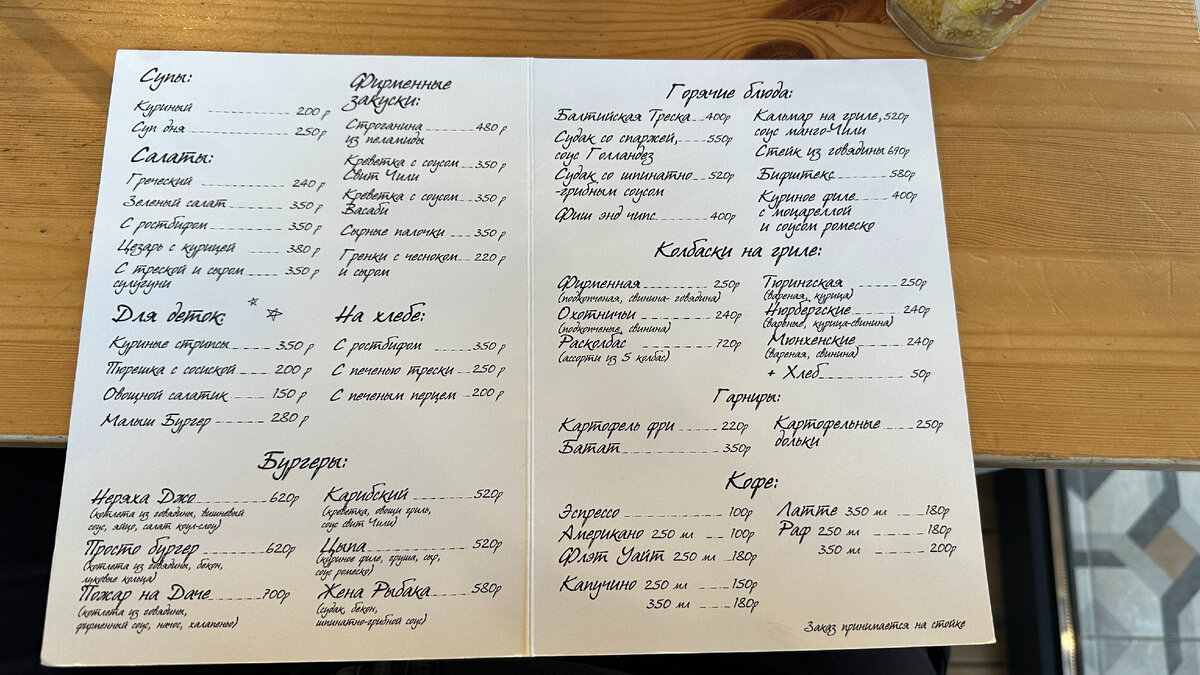 Супы:
Куриный 200 р
Суп дня 250 р
Салаты:
Греческий 240 р
Зеленый салат 350 р
С ростбифом 350 р
Цезарь с курицей 380 р
С треской и сыром 350 р
сулугуни
Фирменные
закуски:
Строганина 480 р
из пеламиды
Креветка с соусом 350 р
Свит Чили
Креветка с соусом 350 р
Васаби
Сырные палочки 350 р
Гренки с чесноком 220 р
и сыром
Для деток:
Куриные стрипсы 350 р
Пюрешка с сосиской 200 р
Овощной салатик 150 р
Малыш Бургер 280 р
На хлебе:
С ростбифом 350 р
С печенью трески 250 р
С печеным перцем 200 р
Бургеры:
Неряха Джо 620р
(котлета из говядины, вишневый
соус, яйцо, салат коул-слоу)
Просто бургер 620р
(котлета из говядины, бекон,
луковые кольца)
Пожар на Даче 700р
(котлета из говядины,
фирменный соус, начос, халапеньо)
Карибский 520р
(креветка, овощи гриль,
соус свит Чили)
Цыпа 520р
(куриное филе, груша, сыр,
соус ромеско)
Жена Рыбака 580р
(судак, бекон,
шпинатно-грибной соус)
Горячие блюда:
Балтийская Треска 400р
Судак со спаржей, 550р
соус Голландез
Судак со шпинатно 520р
-грибным соусом
Фиш энд чипс 400р
Кальмар на гриле, 520р
соус манго-Чили
Стейк из говядины 690р
Бифштекс 580р
Куриное филе 400р
с моцареллой
и соусом ромеско
Колбаски на гриле:
Фирменная 250р
(подкопченая, свинина- говядина)
Охотничьи 240р
(подкопченые, свинина)
Расколбас 720р
(ассорти из 5 колбас)
Тюрингская 250р
(вареная, курица)
Нюрбергские 240р
(вареные, курица-свинина)
Мюнхенские 240р
(вареная, свинина)
+ Хлеб 50р
Гарниры:
Картофель фри 220р
Батат 350р
Картофельные 250р
дольки
Кофе:
Эспрессо 100р
Американо 250 мл 100р
Флэт Уайт 250 мл 180р
Капучино 250 мл 150р
350 мл 180р
Латте 350 мл 180р
Раф 250 мл 180р
350 мл 200р
Заказ принимается на стойке